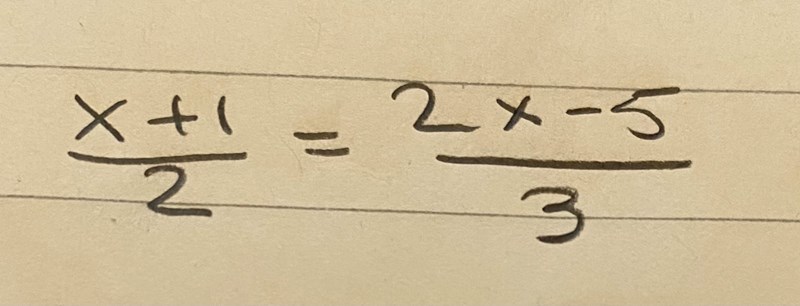 (x+1)/2 = (2x-5)/3